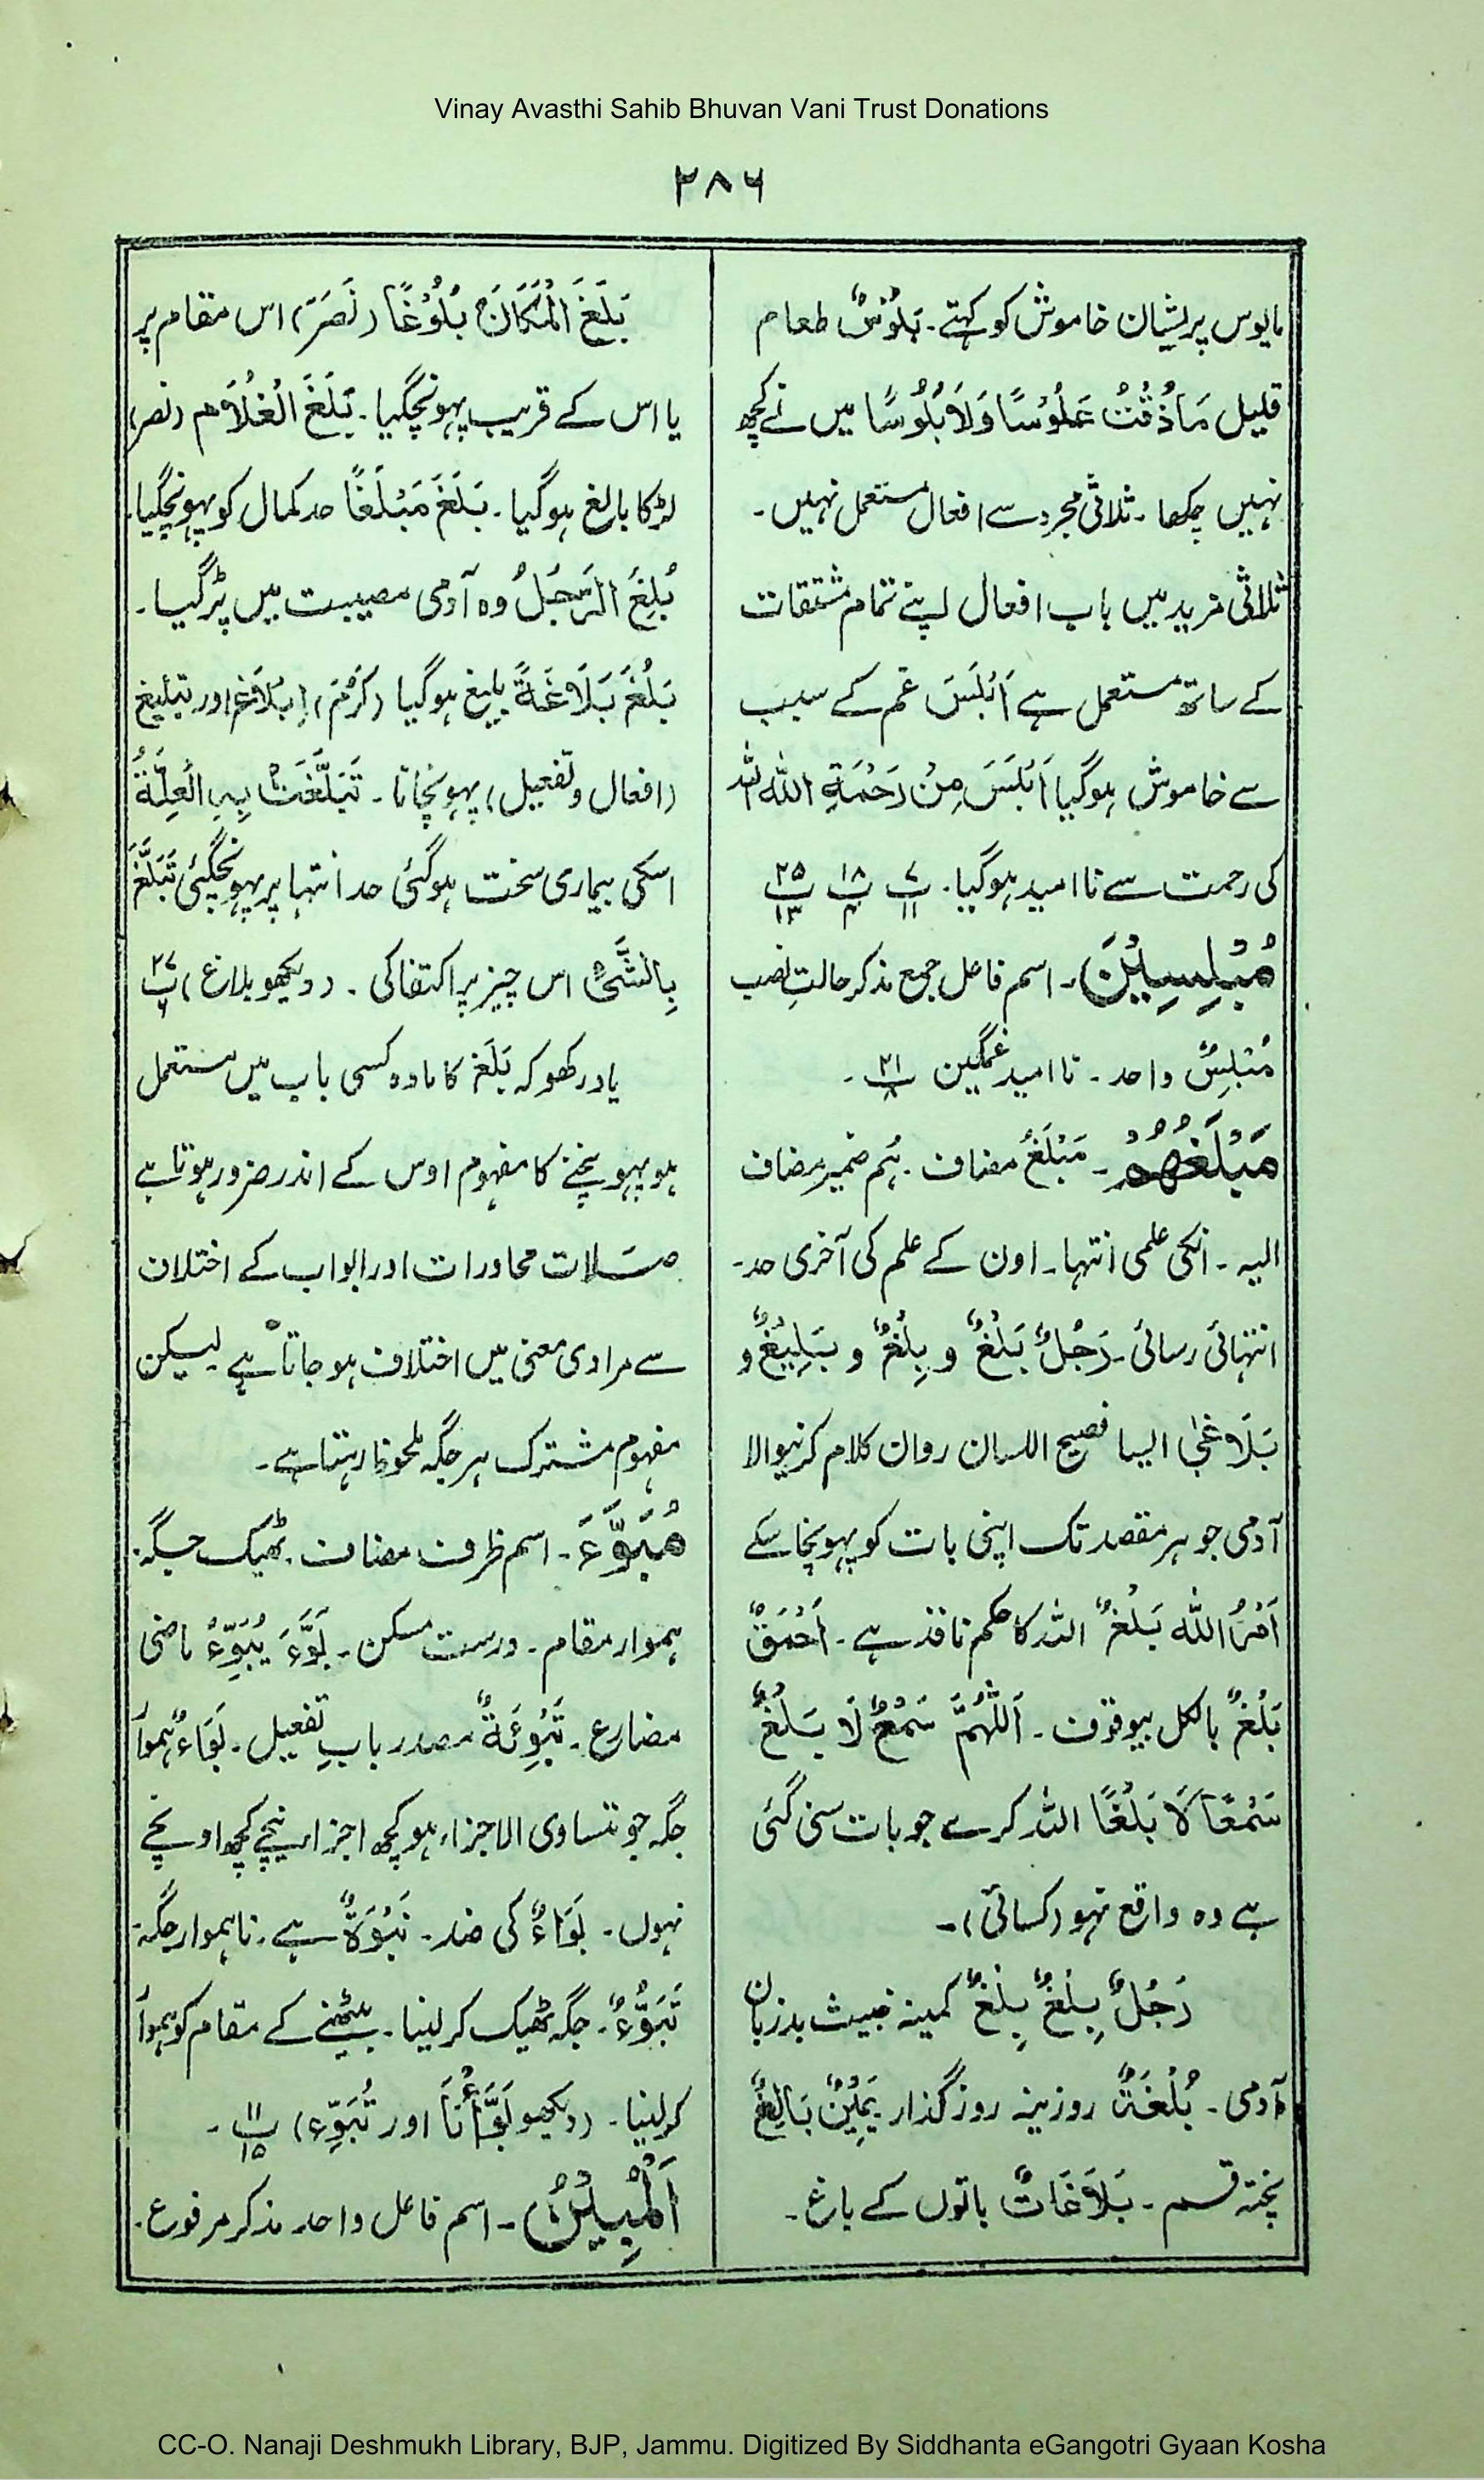 Vinay Avasthi Sahib Bhuvan Vani Trust Donations
۲۸۶
مایوس پریشان خاموش کو کہتے۔ بَلُوْسٌ طعام
قلیل مَاذُقْتُ عَلُوْسًا وَلَا بَلُوْسًا میں نے کچھ
نہیں چکھا۔ ثلاثی مجرد سے افعال مستعمل نہیں۔
ثلاثی مزید میں باب افعال اپنے تمام مشتقات
کے ساتھ مستعمل ہے اَبْلَسَ غم کے سبب
سے خاموش ہوگیا اَبْلَسَ مِنْ رَحْمَةِ اللّٰه اللہ
کی رحمت سے ناامید ہوگیا۔ ۷ پ ۱۱ ۱۸ پ ۴ ۲۵ پ ۱۳
مُبْلِسِيْنَ۔ اسم فاعل جمع مذکر حالتِ نصب
مُبْلِسٌ واحد۔ ناامید غمگین ۲۱ پ ۸۔
مَبْلَغُهُمْ۔ مَبْلَغُ مضاف۔ ہُم ضمیر مضاف
الیہ۔ انکی علمی انتہا۔ اون کے علم کی آخری حد۔
انتہائی رسائی۔ رَجُلٌ بَلْغٌ و بِلْغٌ و بَلِيْغٌ و
بَلَاغٰی ایسا فصیح اللسان رواں کلام کرنیوالا
آدمی جو ہر مقصد تک اپنی بات کو پہونچا سکے
اَمْرُ اللّٰه بَلْغٌ اللہ کا حکم نافذ ہے۔ اَحْمَقٌ
بَلْغٌ بالکل بیوقوف۔ اَللّٰهُمَّ سَمْعٌ لَا بَلْغٌ
سَمْعًا لَا بَلْغًا اللہ کرے جو بات سنی گئی
ہے وہ واقع نہو (کسائی)۔
رَجُلٌ بِلْغٌ بِلْغٌ کمینہ خبیث بدزبان
آدمی۔ بُلْغَةٌ روزینہ روزگذار یَمِيْنٌ بَالِغٌ
پختہ قسم۔ بَلَاغَاتٌ باتوں کے باغ۔
بَلَغَ الْمَكَانَ بُلُوْغًا (نَصَرَ) اس مقام پر
یا اس کے قریب پہونچگیا۔ بَلَغَ الْغُلَام (نصر)
لڑکا بالغ ہوگیا۔ بَلَغَ مَبْلَغًا حد کمال کو پہونچگیا۔
بُلِغَ الرَّجُلُ وہ آدمی مصیبت میں پڑگیا۔
بَلُغَ بَلَاغَةً بلیغ ہوگیا (کَرُمَ) اِبْلَاغ اور تبلیغ
(افعال و تفعیل) پہونچانا۔ تَبَلَّغَتْ بِهِ الْعِلَّةُ
اسکی بیماری سخت ہوگئی حد انتہا پر پہونچگئی تَبَلَّغَ
بِالشَّئِ اس چیز پر اکتفا کی۔ (دیکھو بلاغ) ۲۷ پ ۶
یاد رکھو کہ بَلَغ کا مادہ کسی باب میں مستعمل
ہو پہونچنے کا مفہوم اوس کے اندر ضرور ہوتا ہے
صِلات محاورات اور ابواب کے اختلاف
سے مرادی معنی میں اختلاف ہو جاتا ہے لیکن
مفہوم مشترک ہر جگہ ملحوظ رہتا ہے۔
مُبَوَّءَ۔ اسم ظرف مضاف۔ ٹھیک جگہ۔
ہموار مقام۔ درست مسکن۔ بَوَّءَ يُبَوِّءُ ماضی
مضارع۔ تَبْوِئَةٌ مصدر بابِ تفعیل۔ بَوَاءٌ ہموار
جگہ جو متساوی الاجزاء ہو کچھ اجزا نیچے کچھ اونچے
نہوں۔ بَوَاءٌ کی ضد۔ نَبْوَةٌ ہے۔ ناہموار جگہ۔
تَبَوُّءٌ۔ جگہ ٹھیک کرلینا۔ بیٹھنے کے مقام کو ہموار
کرلینا۔ (دیکھو بَوَّأْنَا اور تُبَوِّء) ۱۱ پ ۱۵۔
اَلْمُبِيْنُ۔ اسم فاعل واحد مذکر مرفوع۔
CC-O. Nanaji Deshmukh Library, BJP, Jammu. Digitized By Siddhanta eGangotri Gyaan Kosha